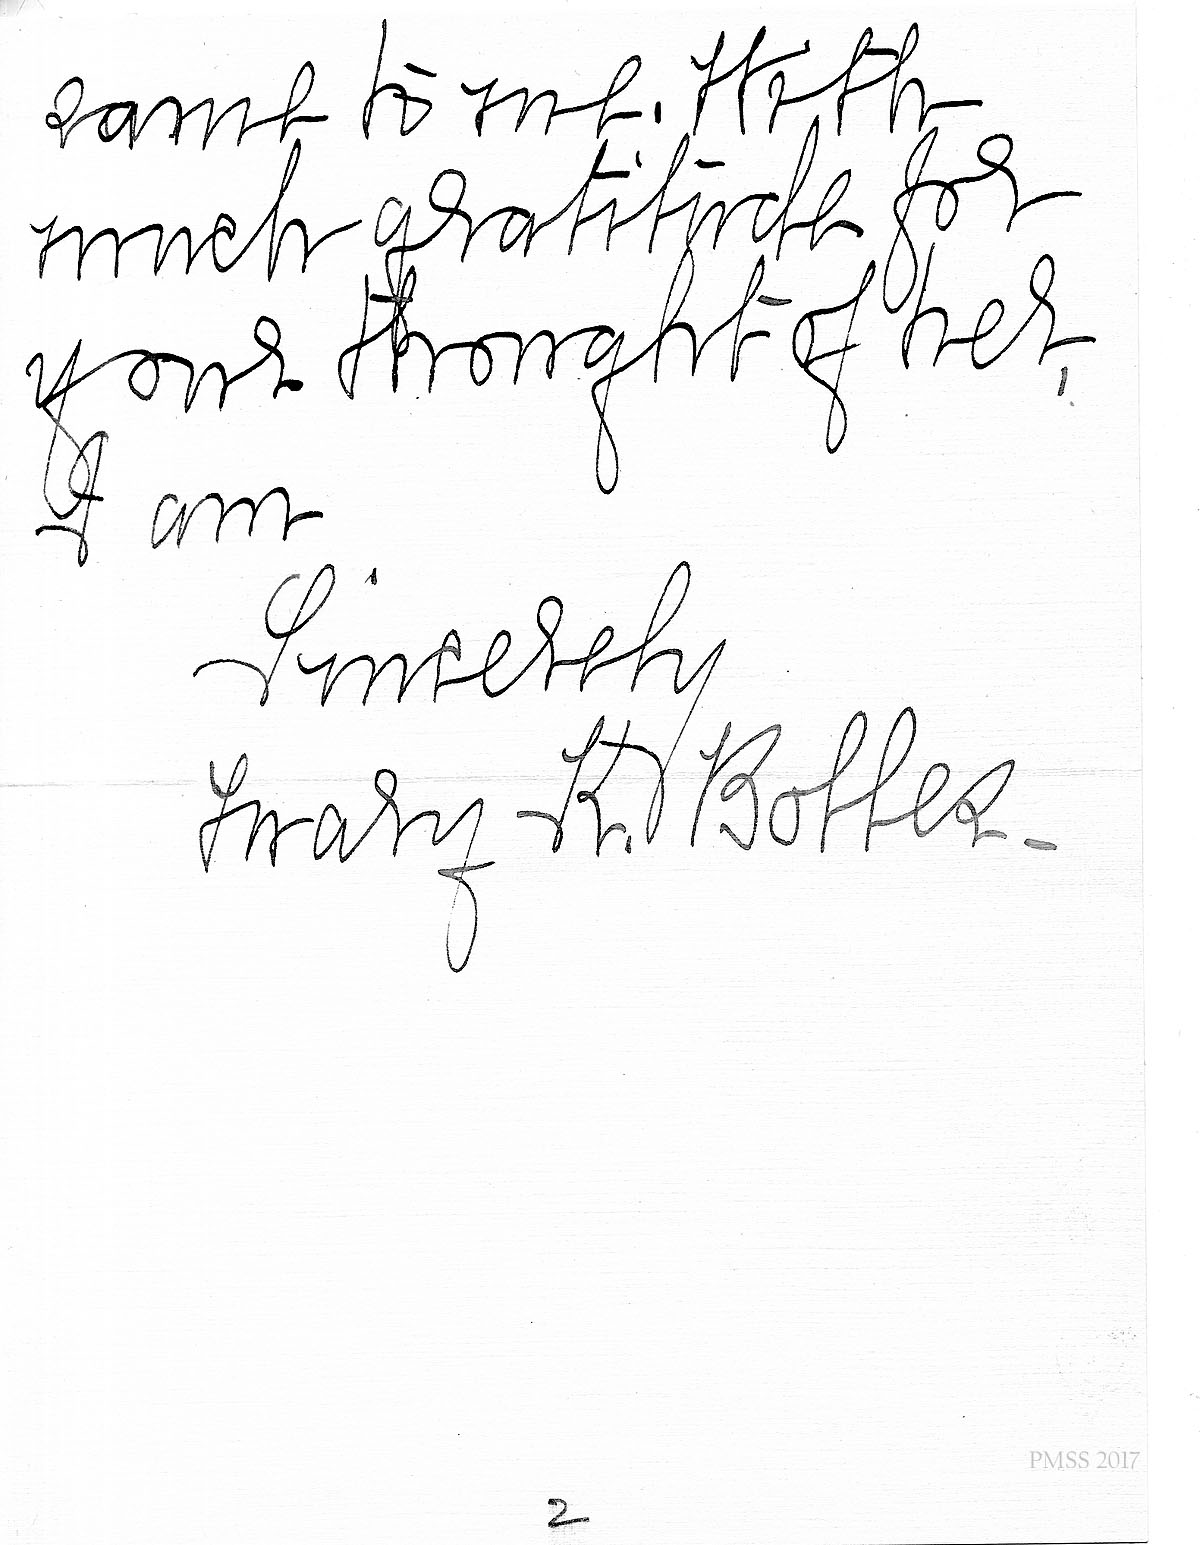 came to me. With
much gratitude for
your thought of her,
I am
Sincerely
Mary K. Bolles.
PMSS 2017
2